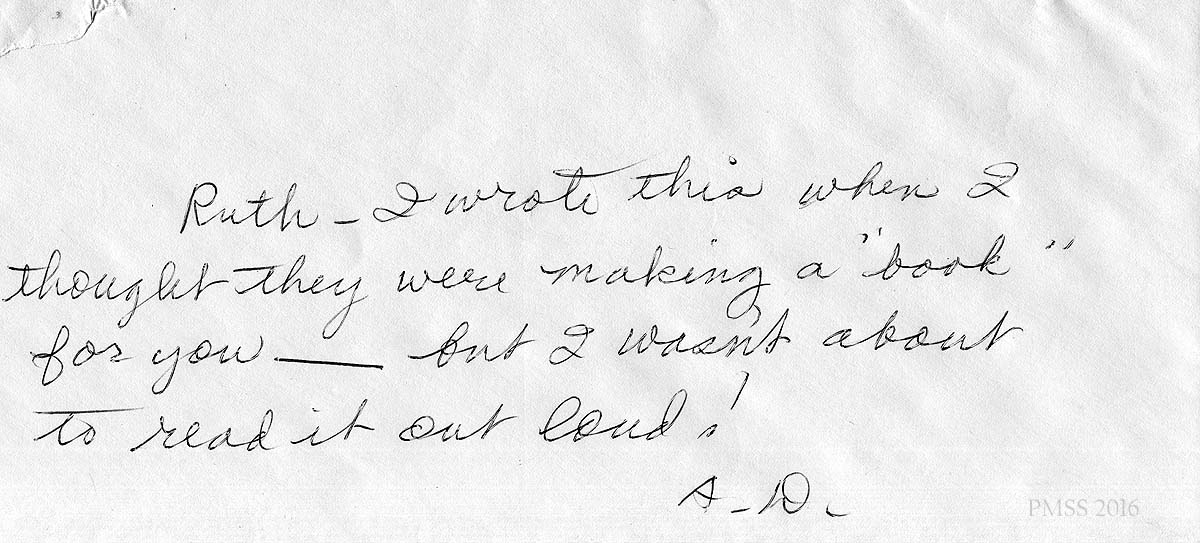 Ruth - I wrote this when I
thought they were making a "book"
for you — but I wasn't about
to read it out loud!
A.D.
PMSS 2016